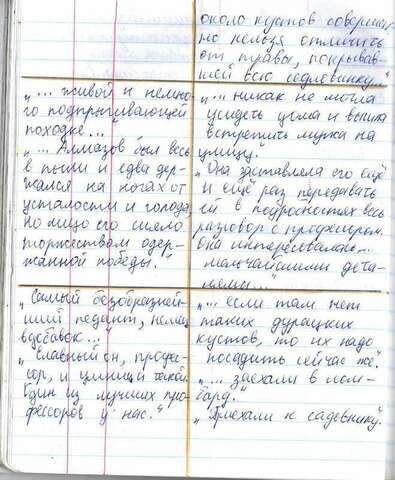 около кустов совершен-
но нельзя отличить
от травы, покрывав-
шей всю седловинку..."
"... живой и немно-
го подпрыгивающей
походке..."
"... Алмазов был весь
в пыли и едва дер-
жался на ногах от
усталости и голода,
но лицо его сияло
торжеством одер-
жанной победы."
"... никак не могла
усидеть дома и вышла
встретить мужа на
улицу."
"Она заставляла его ещё
и ещё раз передавать
ей в подробностях весь
разговор с профессором.
Она интересовалась...
мельчайшими дета-
лями..."
"Самый безобразней-
ший педант, немец
вдобавок..."
"Славный он, профес-
сор, и умница такой.
Один из лучших про-
фессоров у нас."
"... если там нет
таких дурацких
кустов, то их надо
посадить сейчас же".
"... заехали в лом-
бард."
"Приехали к садовнику".